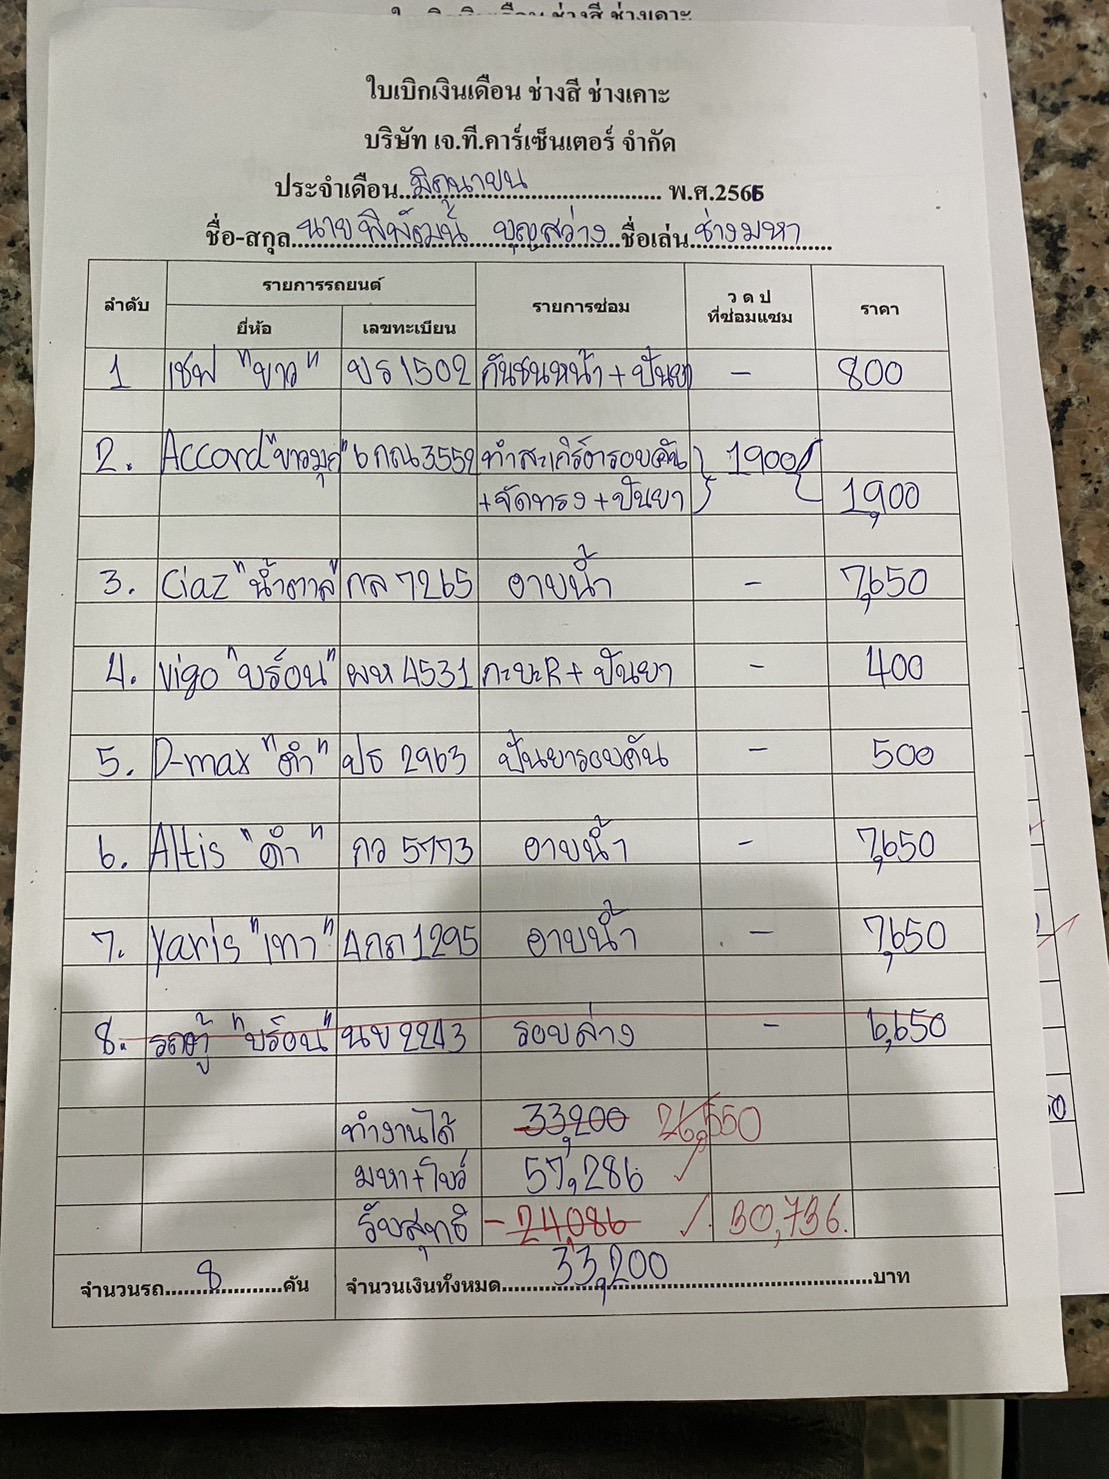 ใบเบิกเงินเดือน ช่างสี ช่างเคาะ
บริษัท เจ.ที.คาร์เซ็นเตอร์ จำกัด
ประจำเดือน..มิถุนายน.......... พ.ศ.2566
ชื่อ-สกุล นายพิพัฒน์ บุญสว่าง ชื่อเล่น ช่างมหา
ลำดับ รายการรถยนต์ รายการซ่อม ว ด ป ที่ซ่อมแซม ราคา
ยี่ห้อ เลขทะเบียน
1 เชฟ "ขาว" ขร 1502 กันชนหน้า + ปั่นยา - 800
2. Accord "ขาวมุก" 6 กณ 3559 ทำสะเกิร์ตารอบคัน 1900
+จัดทรง + ปั่นยา 1,900
3. Ciaz "น้ำตาล" กล 7265 อาบน้ำ - 7,650
4. Vigo "บร์อน" ผห 4531 กะบะR + ปั่นยา - 400
5. D-max "ดำ" ปธ 2963 ปั่นยารอบคัน - 500
6. Altis "ดำ" กว 5773 อาบน้ำ - 7,650
7. Yaris "เทา" 4กถ 1295 อาบน้ำ - 7,650
8. รถตู้ "บร์อน" นข 2243 รอบล่าง - 6,650
ทำงานได้ 33,200 26,550
มหา+โบว์ 57,286
รับสุทธิ -24,086 30,736.
จำนวนรถ 8 คัน จำนวนเงินทั้งหมด 33,200 บาท